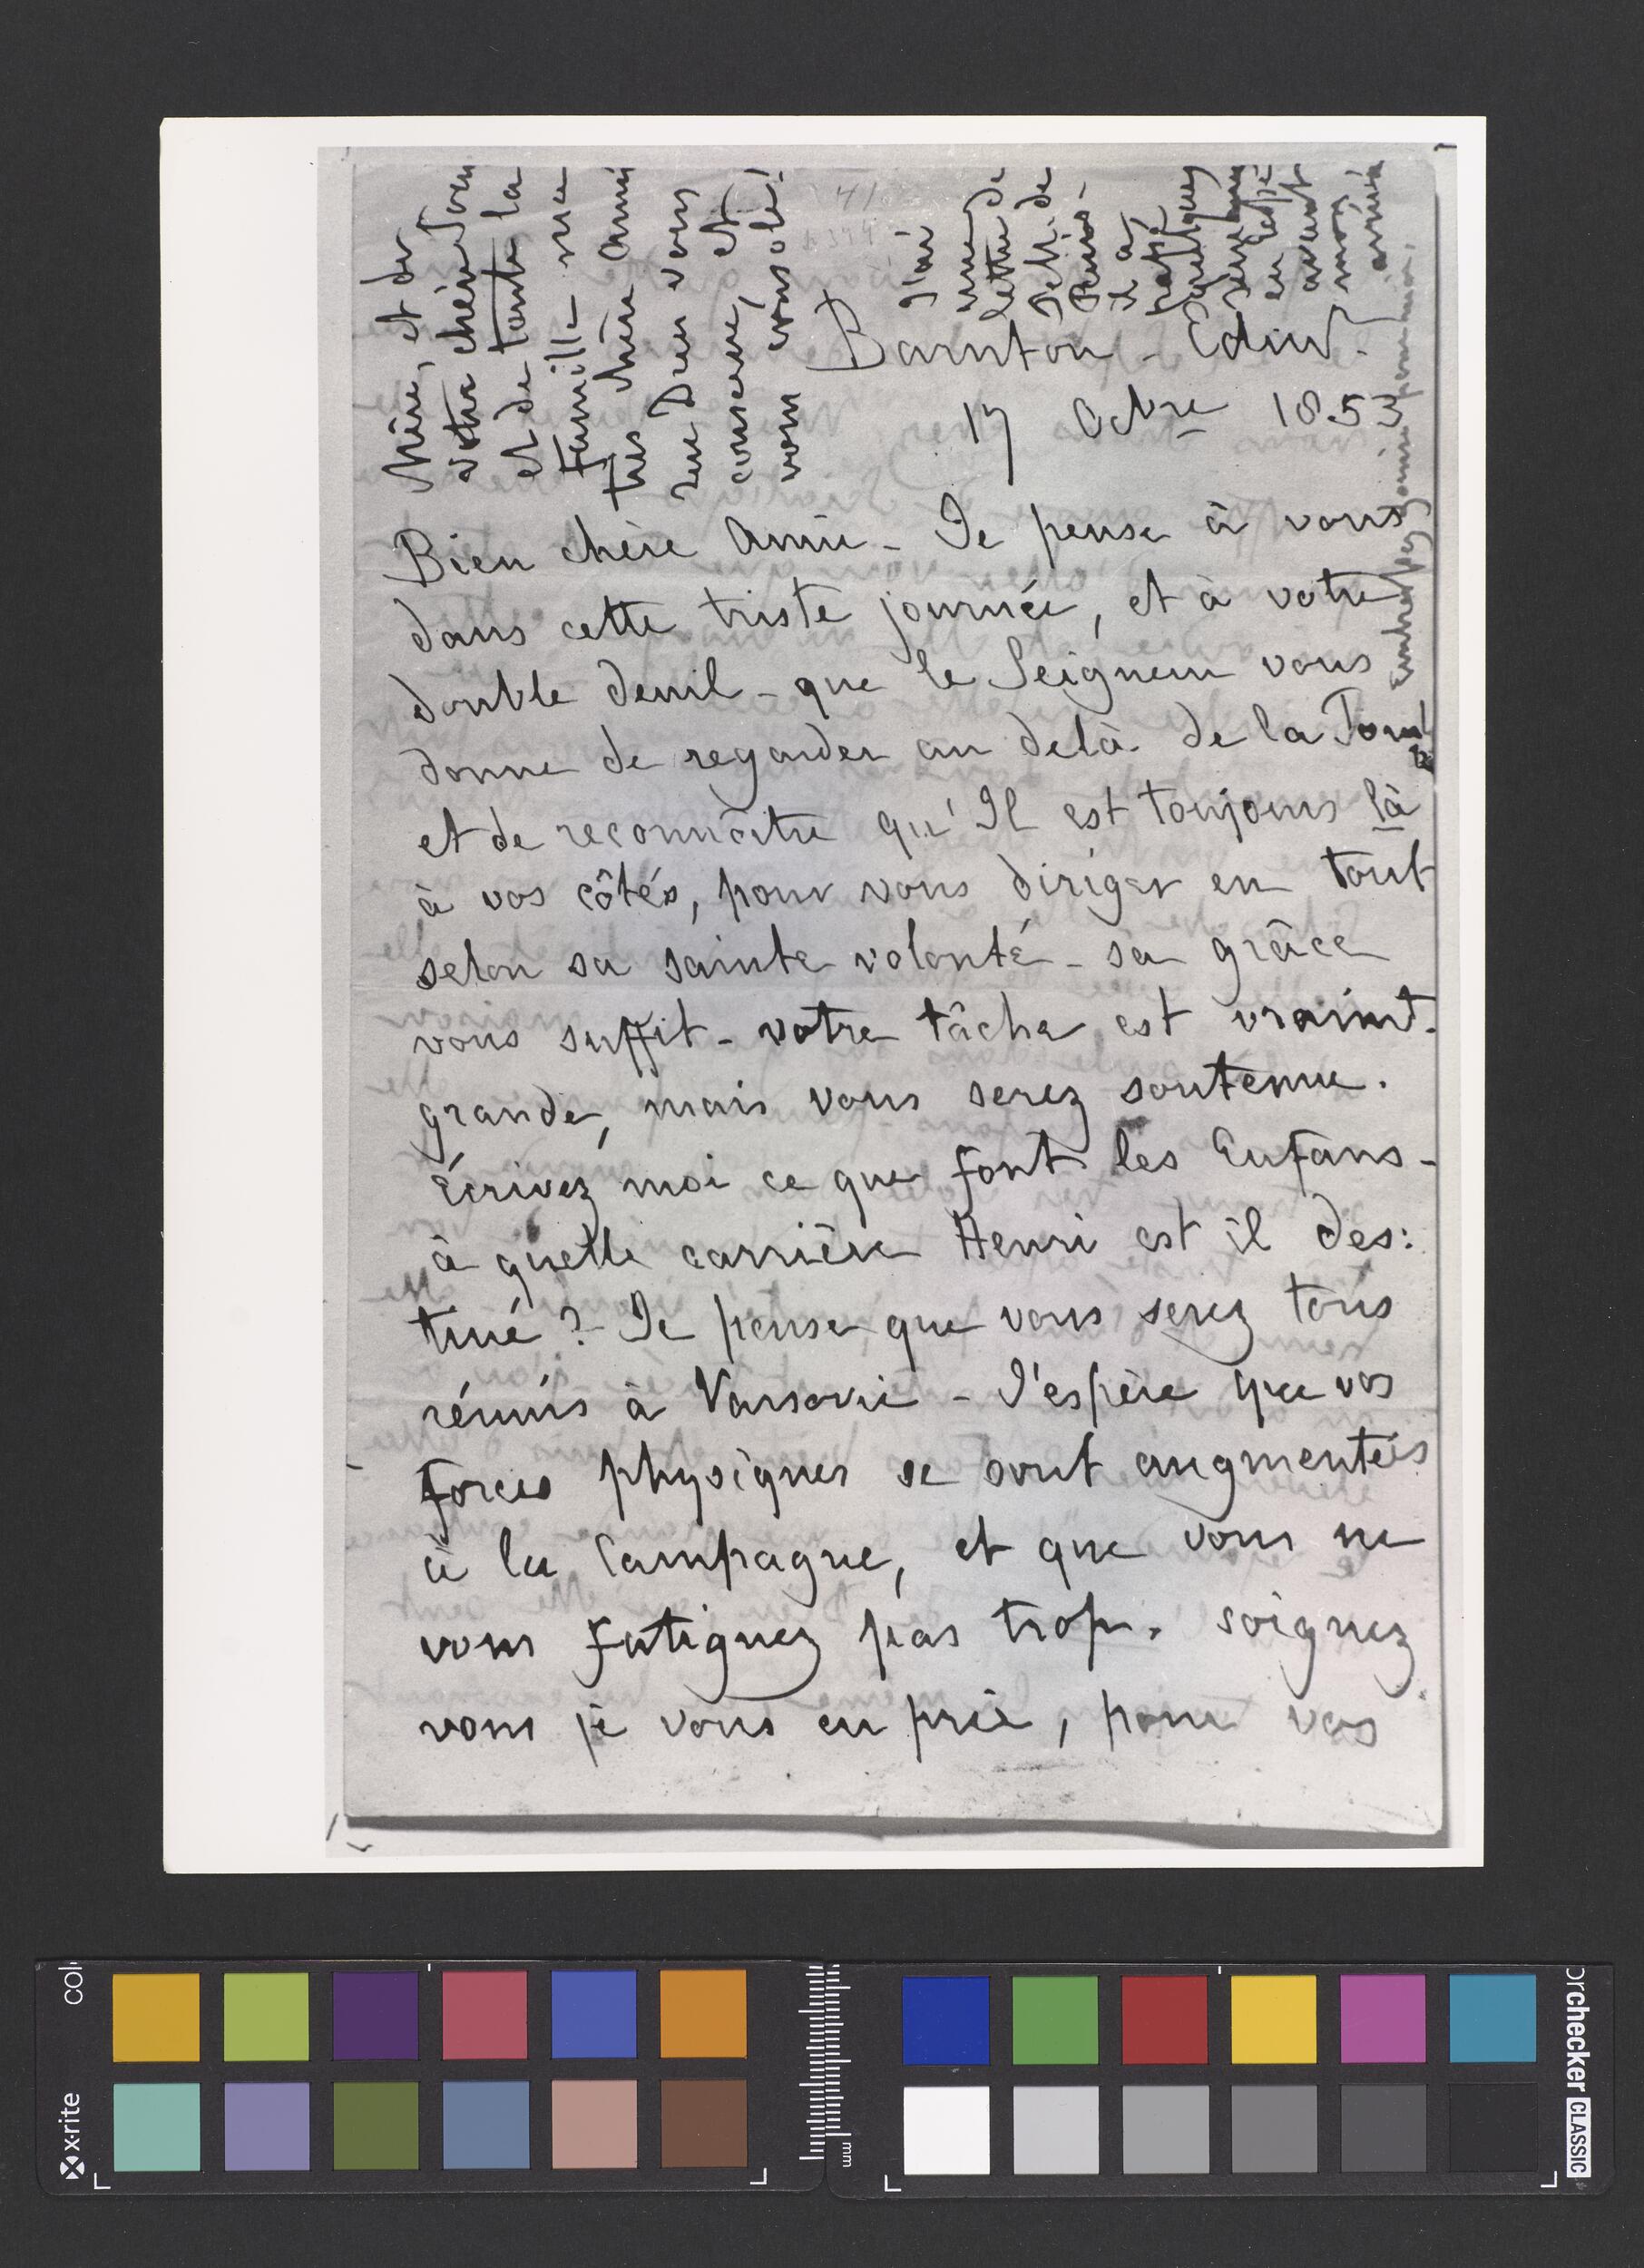 Barnton - Edinb.
17 Octbre 1853
Bien chère Amie - Je pense à vous
dans cette triste journée, et à votre
double deuil - que le Seigneur vous
donne de regarder au delà de la Tombe
et de reconnaître qu'Il est toujours là
à vos côtés, pour vous diriger en tout
selon sa sainte volonté - sa grâce
vous suffit - votre tâche est vraimt.
grande, mais vous serez soutenue.
Écrivez moi ce que font les Enfans -
à quelle carrière Henri est il des:
tiné ? - Je pense que vous serez tous
réunis à Varsovie - J'espère que vos
forces physiques se sont augmentées
à la Campagne, et que vous ne
vous fatiguez pas trop. soignez
vous je vous en prie, pour vos
Mère, et de
votre chère
et de toute la
famille - ma
très chère Amie
que Dieu vous
conserve, et
vous console!
J'ai
une
lettre de
Jell: de
Paris -
il a
passé
quelques
semaines
en
avant
mon
arrivée
x-rite
colorchecker CLASSIC
mm